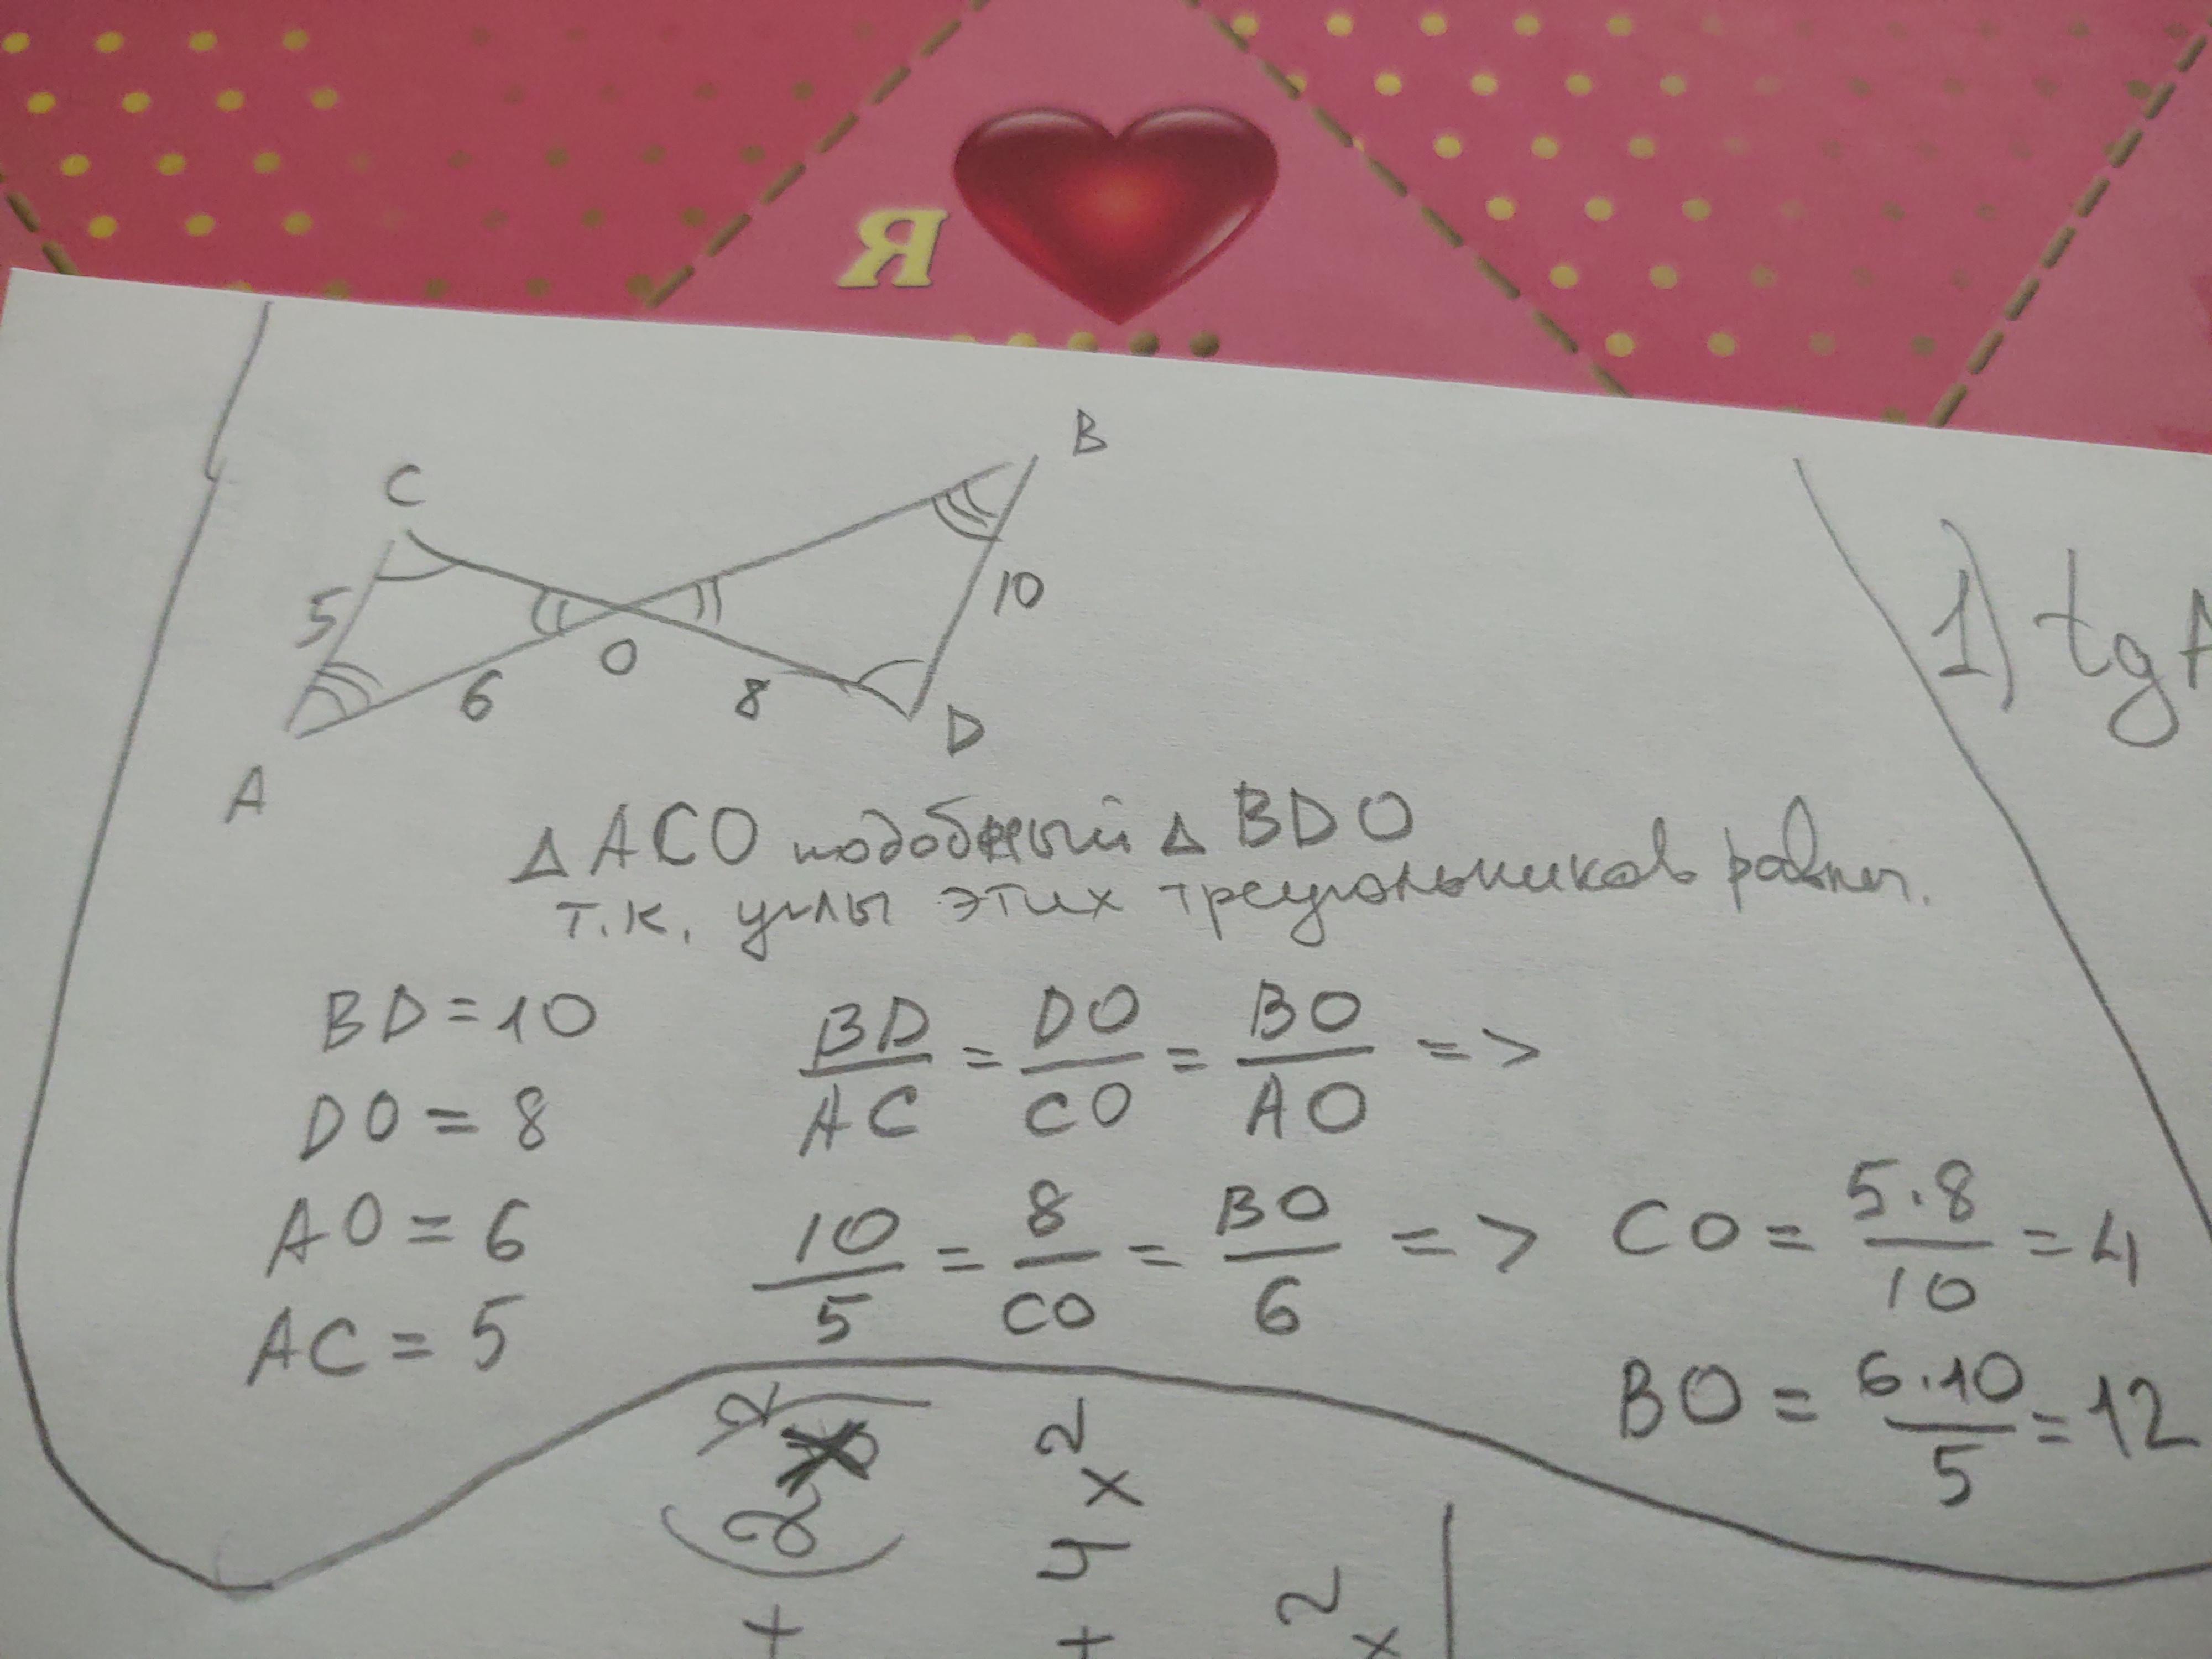 Я
C
B
5
10
6
O
8
D
A
1) tg A
Δ ACO подобный Δ BDO
т.к. углы этих треугольников равны.
BD = 10
DO = 8
AO = 6
AC = 5
BD/AC = DO/CO = BO/AO =>
10/5 = 8/CO = BO/6 => CO = 5·8/10 = 4
BO = 6·10/5 = 12
+ (2)²
+ 4x²
x²